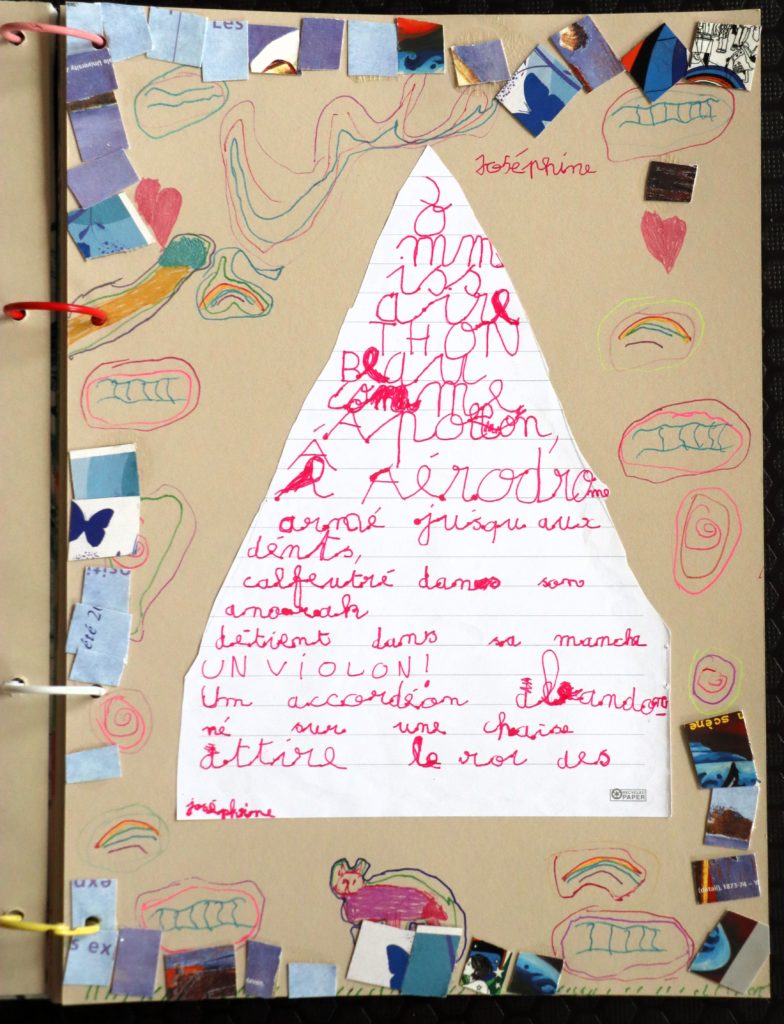 Les
ale University
Joséphine
C
o
mm
iss
aire
THON
Beau
comme
Apollon,
À
Aérodrome
armé jusqu aux
dénts,
calfeutré dans son
anorak
détient dans sa manche
UN VIOLON!
Un accordéon abandon
né sur une chaise
attire le roi des
joséphine
RECYCLED
PAPER
été 20
n scène
(détail), 1873-74 –
s ex